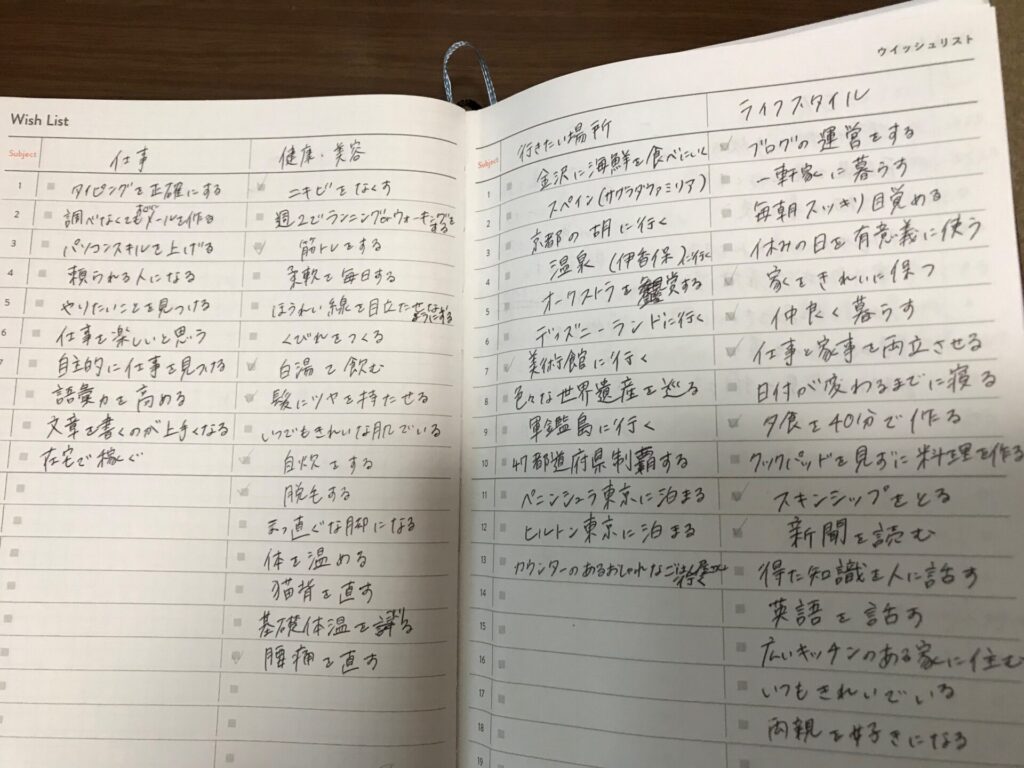 Wish List
Subject
仕事
1 タイピングを正確にする
2 調べなくてもメールを作る
3 パソコンスキルを上げる
4 頼られる人になる
5 やりたいことを見つける
6 仕事を楽しいと思う
7 自主的に仕事を見つける
語彙力を高める
文章を書くのが上手くなる
在宅で稼ぐ
健康・美容
ニキビをなくす
週2でランニングorウォーキングをする
筋トレをする
柔軟を毎日する
ほうれい線を目立たせないようにする
くびれをつくる
白湯を飲む
髪にツヤを持たせる
いつでもきれいな肌でいる
自炊をする
脱毛する
まっ直ぐな脚になる
体を温める
猫背を直す
基礎体温を
腰痛を直す
ウイッシュリスト
Subject
行きたい場所
1 金沢に海鮮を食べにいく
2 スペイン(サグラダファミリア)
3 京都の胡に行く
4 温泉(伊香保)に行く
5 オーケストラを鑑賞する
6 ディズニーランドに行く
7 美術館に行く
8 色々な世界遺産を巡る
9 軍艦島に行く
10 47都道府県制覇する
11 ペニンシュラ東京に泊まる
12 ヒルトン東京に泊まる
13 カウンターのあるおしゃれな
14
15
16
17
18
19
ライフスタイル
ブログの運営をする
一軒家に暮らす
毎朝スッキリ目覚める
休みの日を有意義に使う
家をきれいに保つ
仲良く暮らす
仕事と家事を両立させる
日付が変わるまでに寝る
夕食を40分で作る
クックパッドを見ずに料理を作る
スキンシップをとる
新聞を読む
得た知識を人に話す
英語を話す
広いキッチンのある家に住む
いつもきれいでいる
両親を好きになる